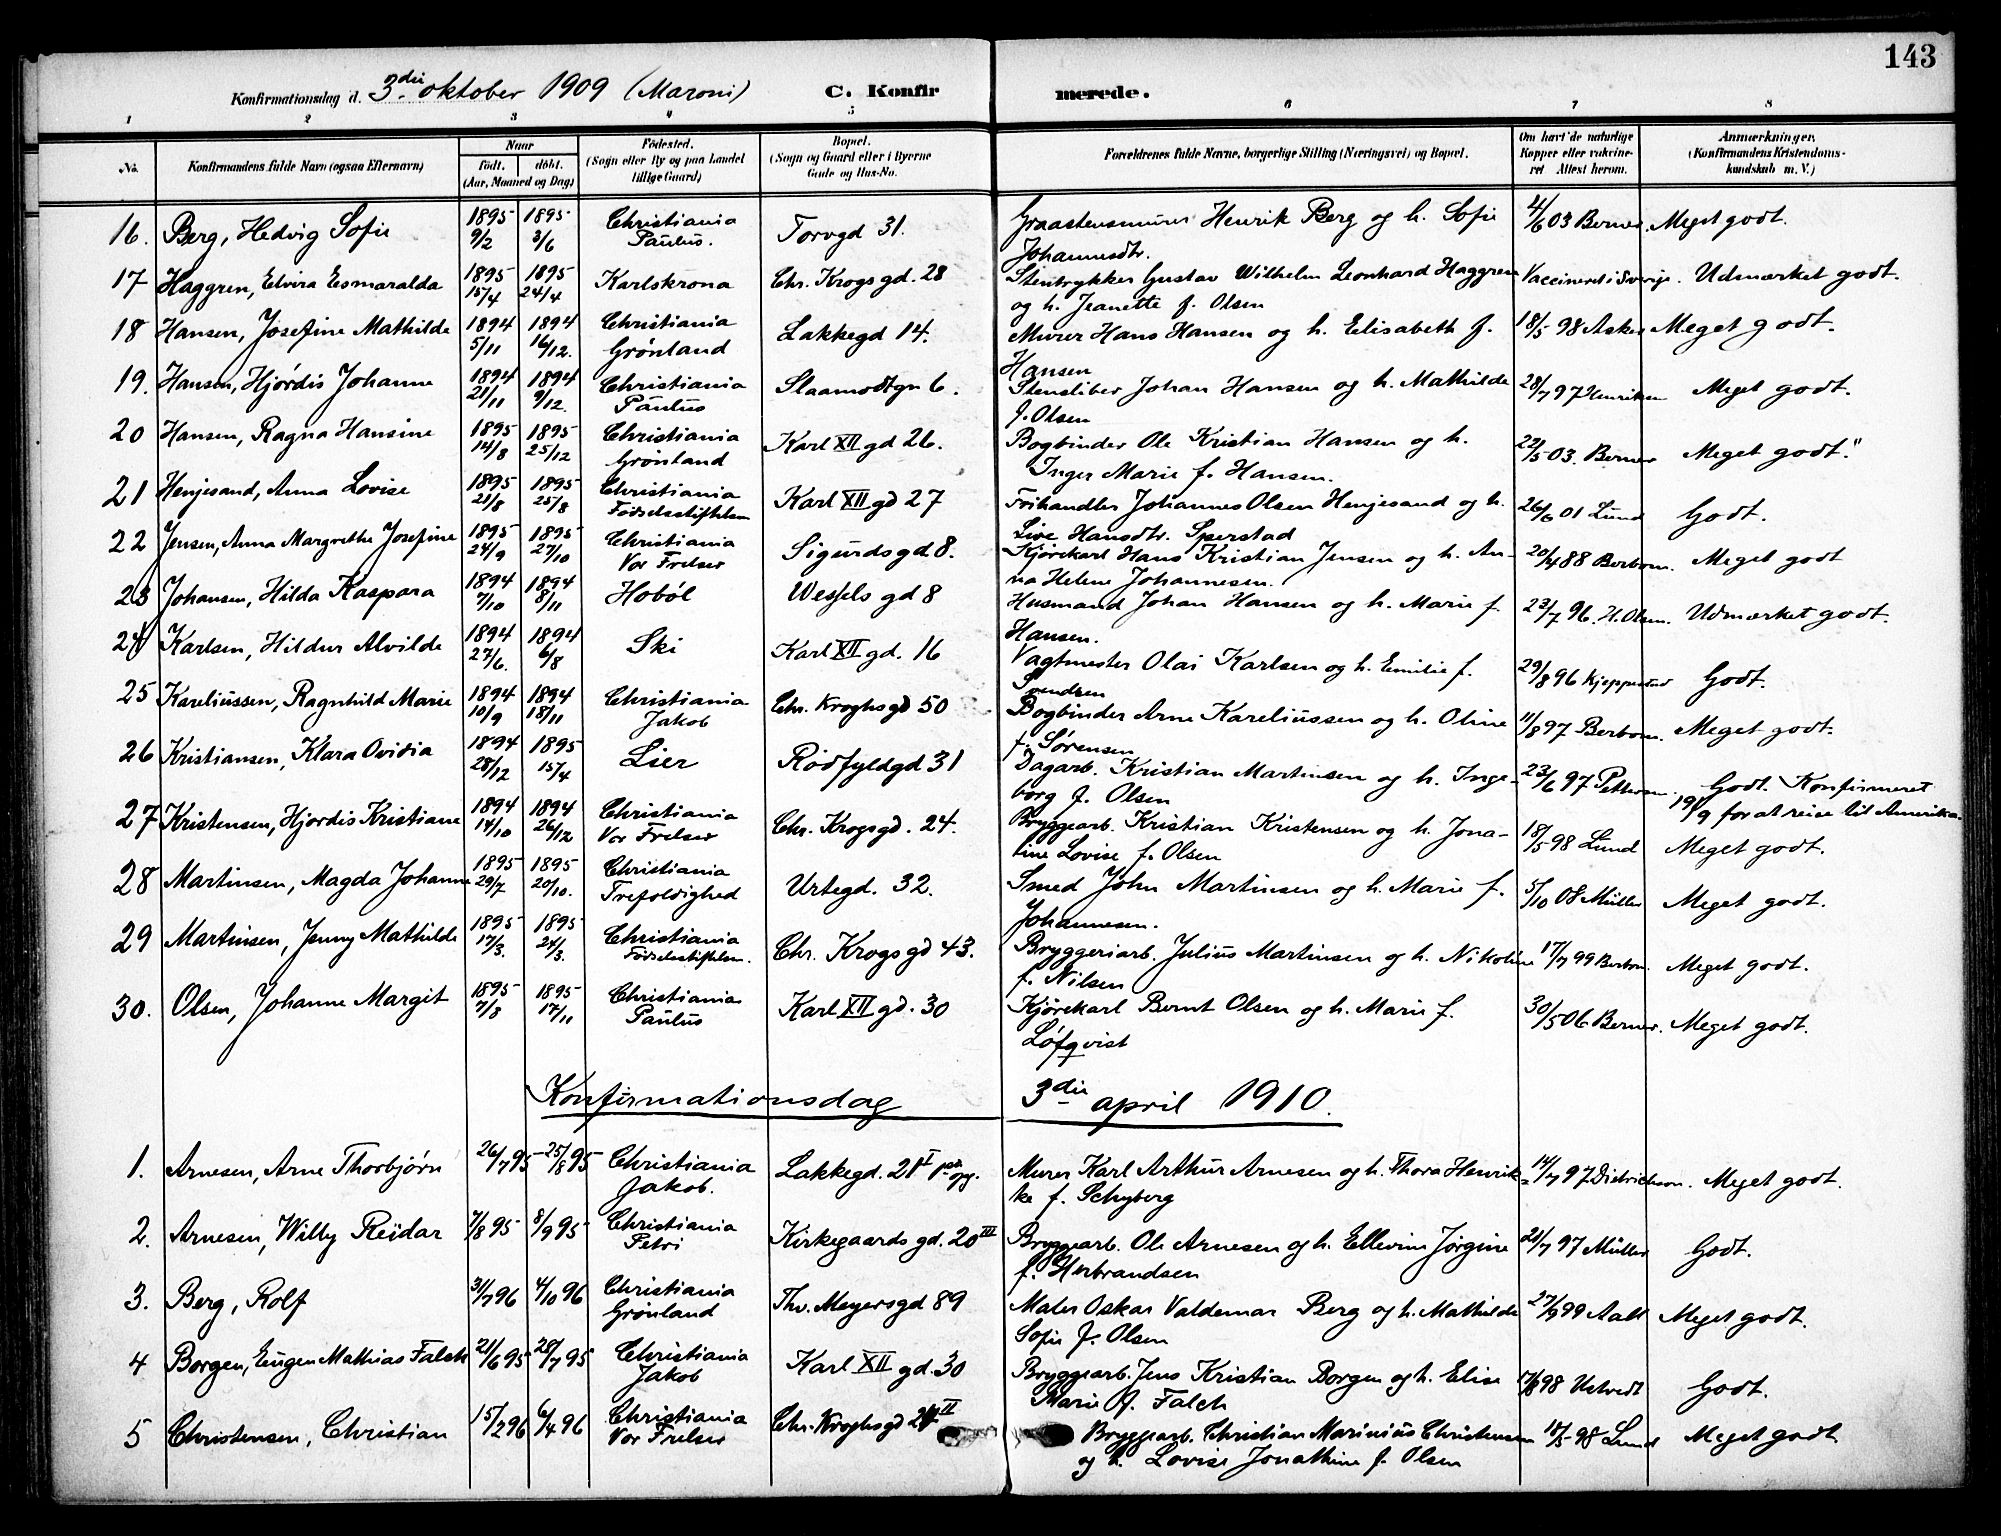 143
Konfirmationsdag d. 3die oktober 1909 (Maroni) C. Konfirmerede.
1 2 3 4 5 6 7 8
No. Konfirmandens fulde Navn (ogsaa Efternavn) Naar født. døbt. (Aar, Maaned og Dag) Fødested. (Sogn eller By og paa Landet tillige Gaard) Bopæl. (Sogn og Gaard eller i Byerne Gade og Hus-No. Forældrenes fulde Navne, borgerlige Stilling (Næringsvei) og Bopæl. Om havt de naturlige Kopper eller vakcineret Attest herom. Anmærkninger, (Konfirmandens Kristendomskundskab m. V.)
16. Berg, Hedvig Sofie 1895 9/2 1895 3/6 Christiania Paulus. Torvgd 31. Graastensmurer Henrik Berg og h. Sofie Johannesdtr. 4/6 03 Berner. Meget godt.
17 Haggren, Elvira Esmaralda 1895 15/4 1895 24/4 Karlskrona Chr. Krogs gd. 28 Stentrykker Gustav Wilhelm Leonhard Haggren og h. Jeanette f. Olsen Vaccineret i Sverige. Udmærket godt.
18 Hansen, Josefine Mathilde 1894 5/11 1894 16/12. Christiania Grønland Lakkegd 14. Murer Hans Hansen og h. Elisabeth f. Hansen 18/5 98 Asker Meget godt.
19. Hansen, Hjørdis Johanne 1894 21/11 1894 9/12. Christiania Paulus Slaamodtgn 6. Stensliber Johan Hansen og h. Mathilde f. Olsen 28/7 97 Henriksen Meget godt.
20 Hansen, Ragna Hansine 1895 14/8 1895 25/12 Christiania Grønland Karl XII gd 26. Bogbinder Ole Kristian Hansen og h. Inger Marie f. Hansen. 22/5 03. Berner Meget godt."
21 Henjesand, Anna Lovise 1895 21/8 1895 25/8 Christiania Fødselsstiftelsen Karl XII gd 27 Frihandler Johannes Olsen Henjesand og h. Live Hansdtr. Sperstad 26/6 01 Lund Godt.
22 Jensen, Anna Margrethe Josefine 1895 24/9 1895 27/10 Christiania Vor Frelser Sigurds gd 8. Kjørekarl Hans Kristian Jensen og h. Anna Helene Johannesen. 20/4 88 Berbom. Meget godt
23 Johansen, Hilda Kaspara 1894 7/10 1894 8/11 Hobøl Wessels gd 8 Husmand Johan Hansen og h. Marie f. Hansen. 23/7 96. H. Olsen. Udmærket godt.
24 Karlsen, Hildur Alvilde 1894 27/6. 1894 6/8 Ski Karl XII gd. 16 Vagtmester Olai Karlsen og h. Emilie f. Svendsen 29/8 96 Godt.
25 Kareliussen, Ragnhild Marie 1894 10/9 1894 18/11 Christiania Jakob Chr. Kroghs gd 50 Bogbinder Arne Kareliussen og h. Oline f. Sørensen 11/8 97 Berbom. Meget godt.
26 Kristiansen, Klara Ovidia 1894 28/12 1895 15/4 Lier Rødfyldgd 31 Dagarb. Kristian Martinsen og h. Ingeborg f. Olsen 23/6 97 Pettersen. Godt. Konfirmeret 19/9 for at reise til Amerika.
27 Kristensen, Hjordis Kristiane 1894 14/10 1894 26/12 Christiania Vor Frelser Chr. Krogs gd. 24. Bryggearb. Kristian Kristensen og h. Jonatine Lovise f. Olsen 18/5 98 Lund Meget godt.
28 Martinsen, Magda Johanne 1895 29/7 1895 20/10. Christiania Trefoldighed Urtegd. 32. Smed John Martinsen og h. Marie f. Johannesen. 5/10 08 Müller Meget godt.
29 Martinsen, Jenny Mathilde 1895 17/3. 1895 24/3. Christiania Fødselsstiftelsen. Chr. Krogs gd 43. Bryggeriarb. Julius Martinsen og h. Nikoline f. Nilsen 17/7 99 Berbom. Meget godt.
30. Olsen, Johanne Margit 1895 7/8 1895 17/11 Christiania Paulus Karl XII gd. 30 Kjørekarl Bernt Olsen og h. Marie f. Løfqvist 30/5 06 Berner. Meget godt.
Konfirmationsdag 3die april 1910.
1. Arnesen, Arne Thorbjørn 26/7 95 25/8 95 Christiania Jakob. Lakkegd. 21 I Murer Karl Arthur Arnesen og h. Thora Henrikke f. Schyberg 14/7 97 Dietrichson. Meget godt.
2. Arnesen, Willy Reidar 7/8 95 8/9 95 Christiania Petri Kirkegaards gd. 20 III Bryggearb. Ole Arnesen og h. Ellevine Jørgine f. Herbrandsen 21/7 97 Müller Godt.
3. Berg, Rolf 31/7 96 4/10 96 Christiania Grønland Thv. Meyers gd 89 Maler Oskar Valdemar Berg og h. Mathilde Sofie f. Olsen 27/9 99 Aall Meget godt.
4 Borgen, Eugen Mathias Falch 21/6 95 28/7 95 Christiania Jakob Karl XII gd. 30 Bryggearb. Jens Kristian Borgen og h. Elise Marie f. Falch 17/8 98 Ustvedt Godt.
5 Christensen, Christian 15/2 96 6/4 96 Christiania Vor Frelser Chr. Kroghs gd 24 II Bryggearb. Christian Marinius Christensen og h. Lovise Jonathine f. Olsen 18/5 98 Lund Meget godt.